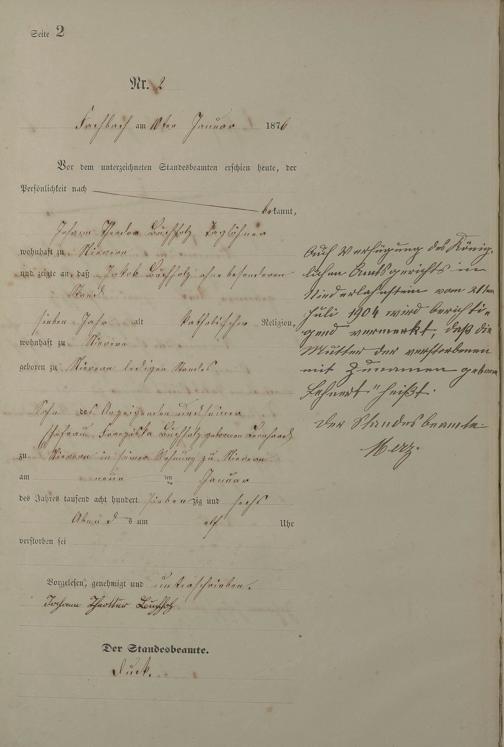 Seite 2
Nr. 2
Fachbach am 10ten Januar 1876
Vor dem unterzeichneten Standesbeamten erschien heute, der
Persönlichkeit nach
bekannt,
Johann Theodor Buchholz Taglöhner
wohnhaft zu Nievern
und zeigte an, daß Jakob Buchholz ohne besonderen
Stand
sieben Jahr alt katholischer Religion,
wohnhaft zu Nievern
geboren zu Nievern ledigen Standes
Sohn des Anzeigenden und seiner
Ehefrau Franziska Buchholz geborenen Lenhardt
zu Nievern in seiner Wohnung zu Nievern
am neun ten Januar
des Jahres tausend acht hundert siebenzig und sechs
Abends um elf Uhr
verstorben sei
Vorgelesen, genehmigt und unterschrieben.
Johann Buchholz
Der Standesbeamte.
Auf Verfügung des König-
lichen Amtsgerichts in
Niederlahnstein vom 21ten
Juli 1904 wird berichti-
gend vermerkt, daß die
Mutter der verstorbenen
mit Zunamen geborene
Lehnert" heißt.
Der Standesbeamte
Merz.